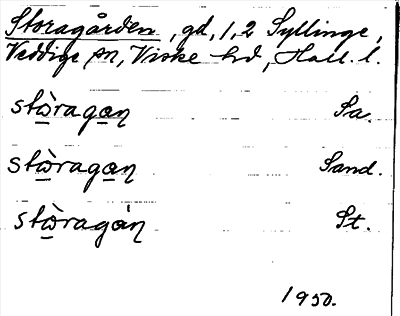 Storagården, gd, 1, 2 Syllinge,
Veddige sn, Viske hd, Hall. l.
stὼ̲raga̲n̥ Sa.
stὼ̲raga̲n̥ Sand.
stὼ̲ragán̥ St.
1950.